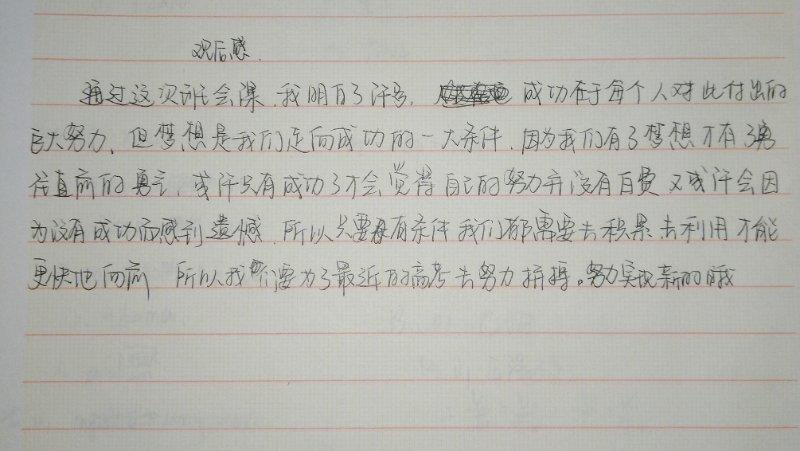 观后感.
通过这次班会课.我明白了许多, 成功在于每个人对此付出的
巨大努力.但梦想是我们走向成功的一大条件.因为我们有了梦想才有了勇
往直前的勇气,或许只有成功了才会觉得自己的努力并没有白费又或许会因
为没有成功而感到遗憾.所以只要有条件我们都需要去积累去利用才能
更快地向前 所以我们要为了最近的高考去努力拼搏。努力实现新的哦